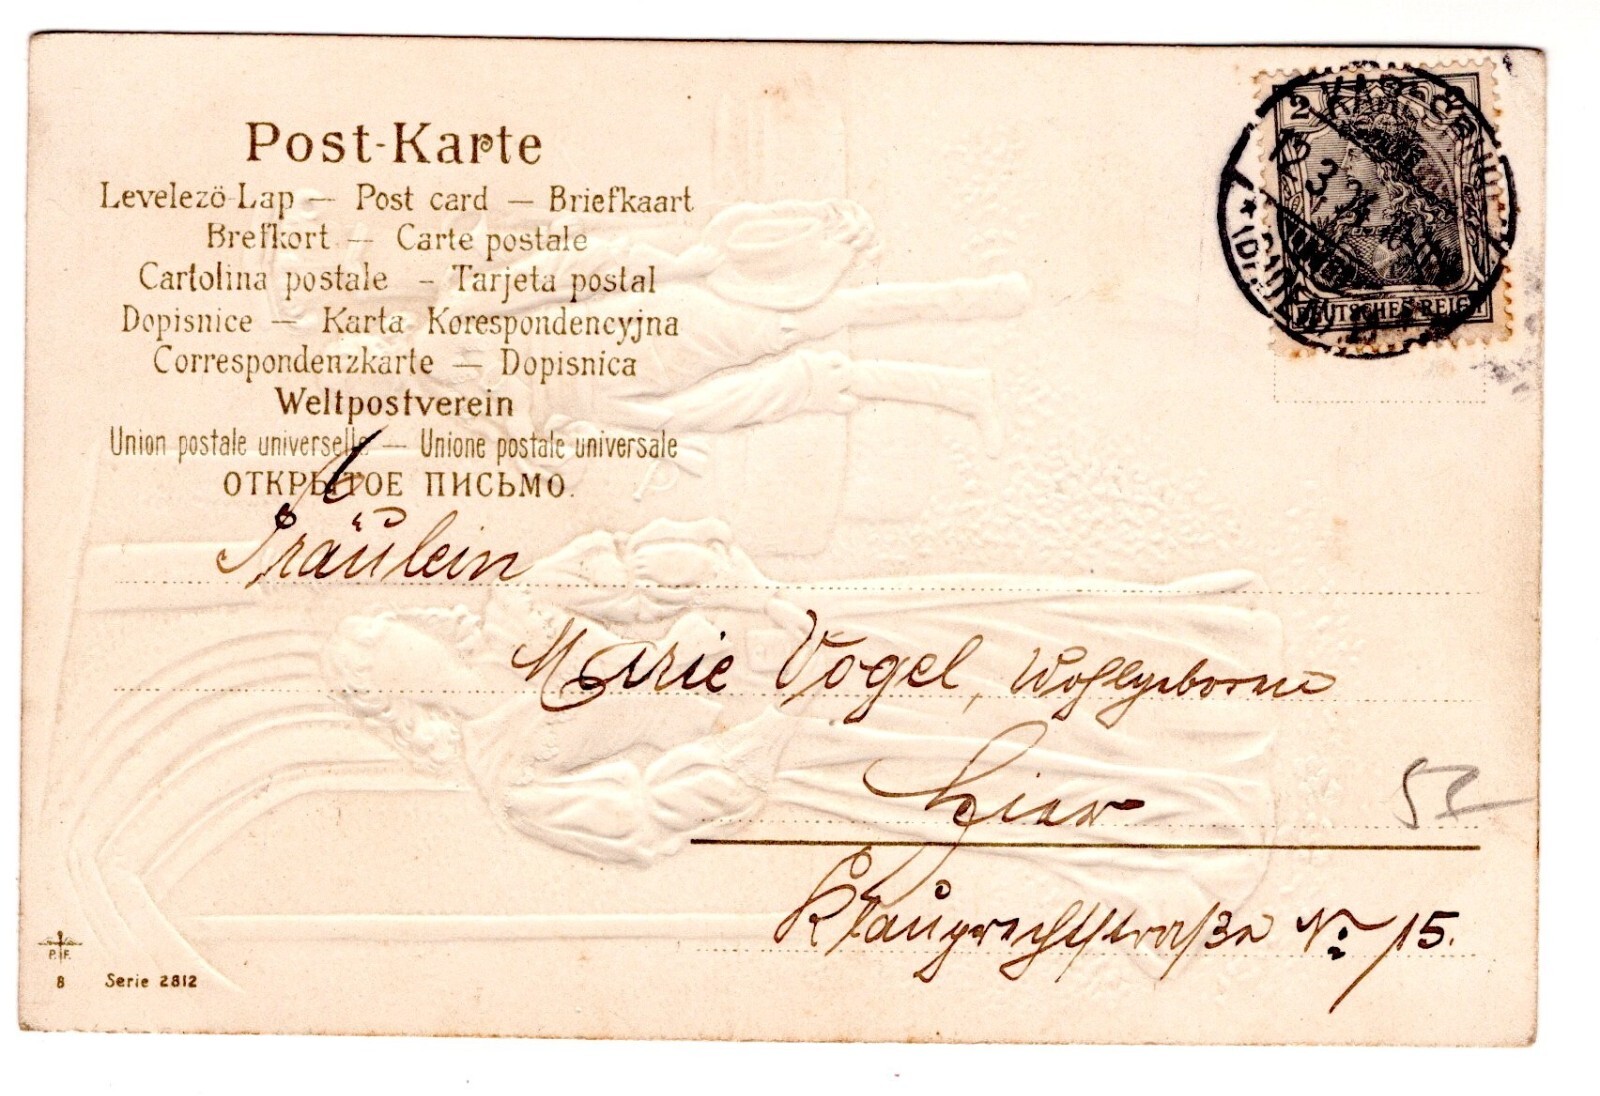 Post-Karte
Levelezö-Lap — Post card — Briefkaart
Brefkort — Carte postale
Cartolina postale – Tarjeta postal
Dopisnice — Karta Korespondencyjna
Correspondenzkarte — Dopisnica
Weltpostverein
Union postale universelle — Unione postale universale
ОТКРЫТОЕ ПИСЬМО.
2
DEUTSCHES REICH
Fräulein
Marie Vogel, Wohlgeborne
hier
Klauprechtstraße No 15.
52
P.F.
8 Serie 2812